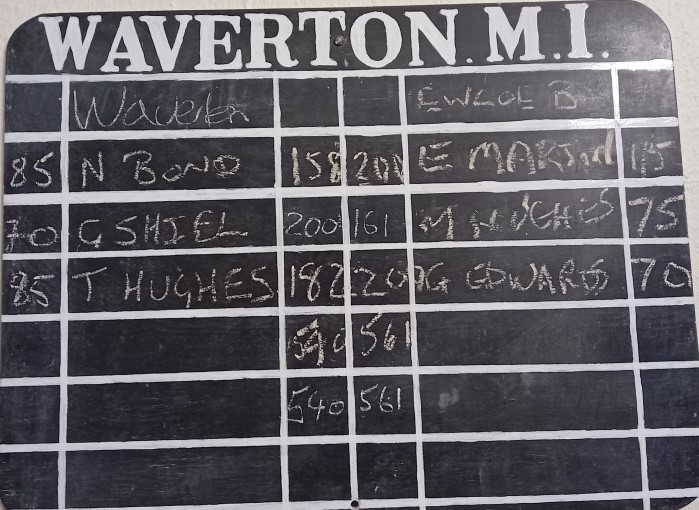 WAVERTON. M.I.
Waverton EWLOE B
85 N BOND 158 200 E MARTIN 115
70 G SHIEL 200 161 M HUGHES 75
85 T HUGHES 182 200 G EDWARDS 70
540 561
540 561